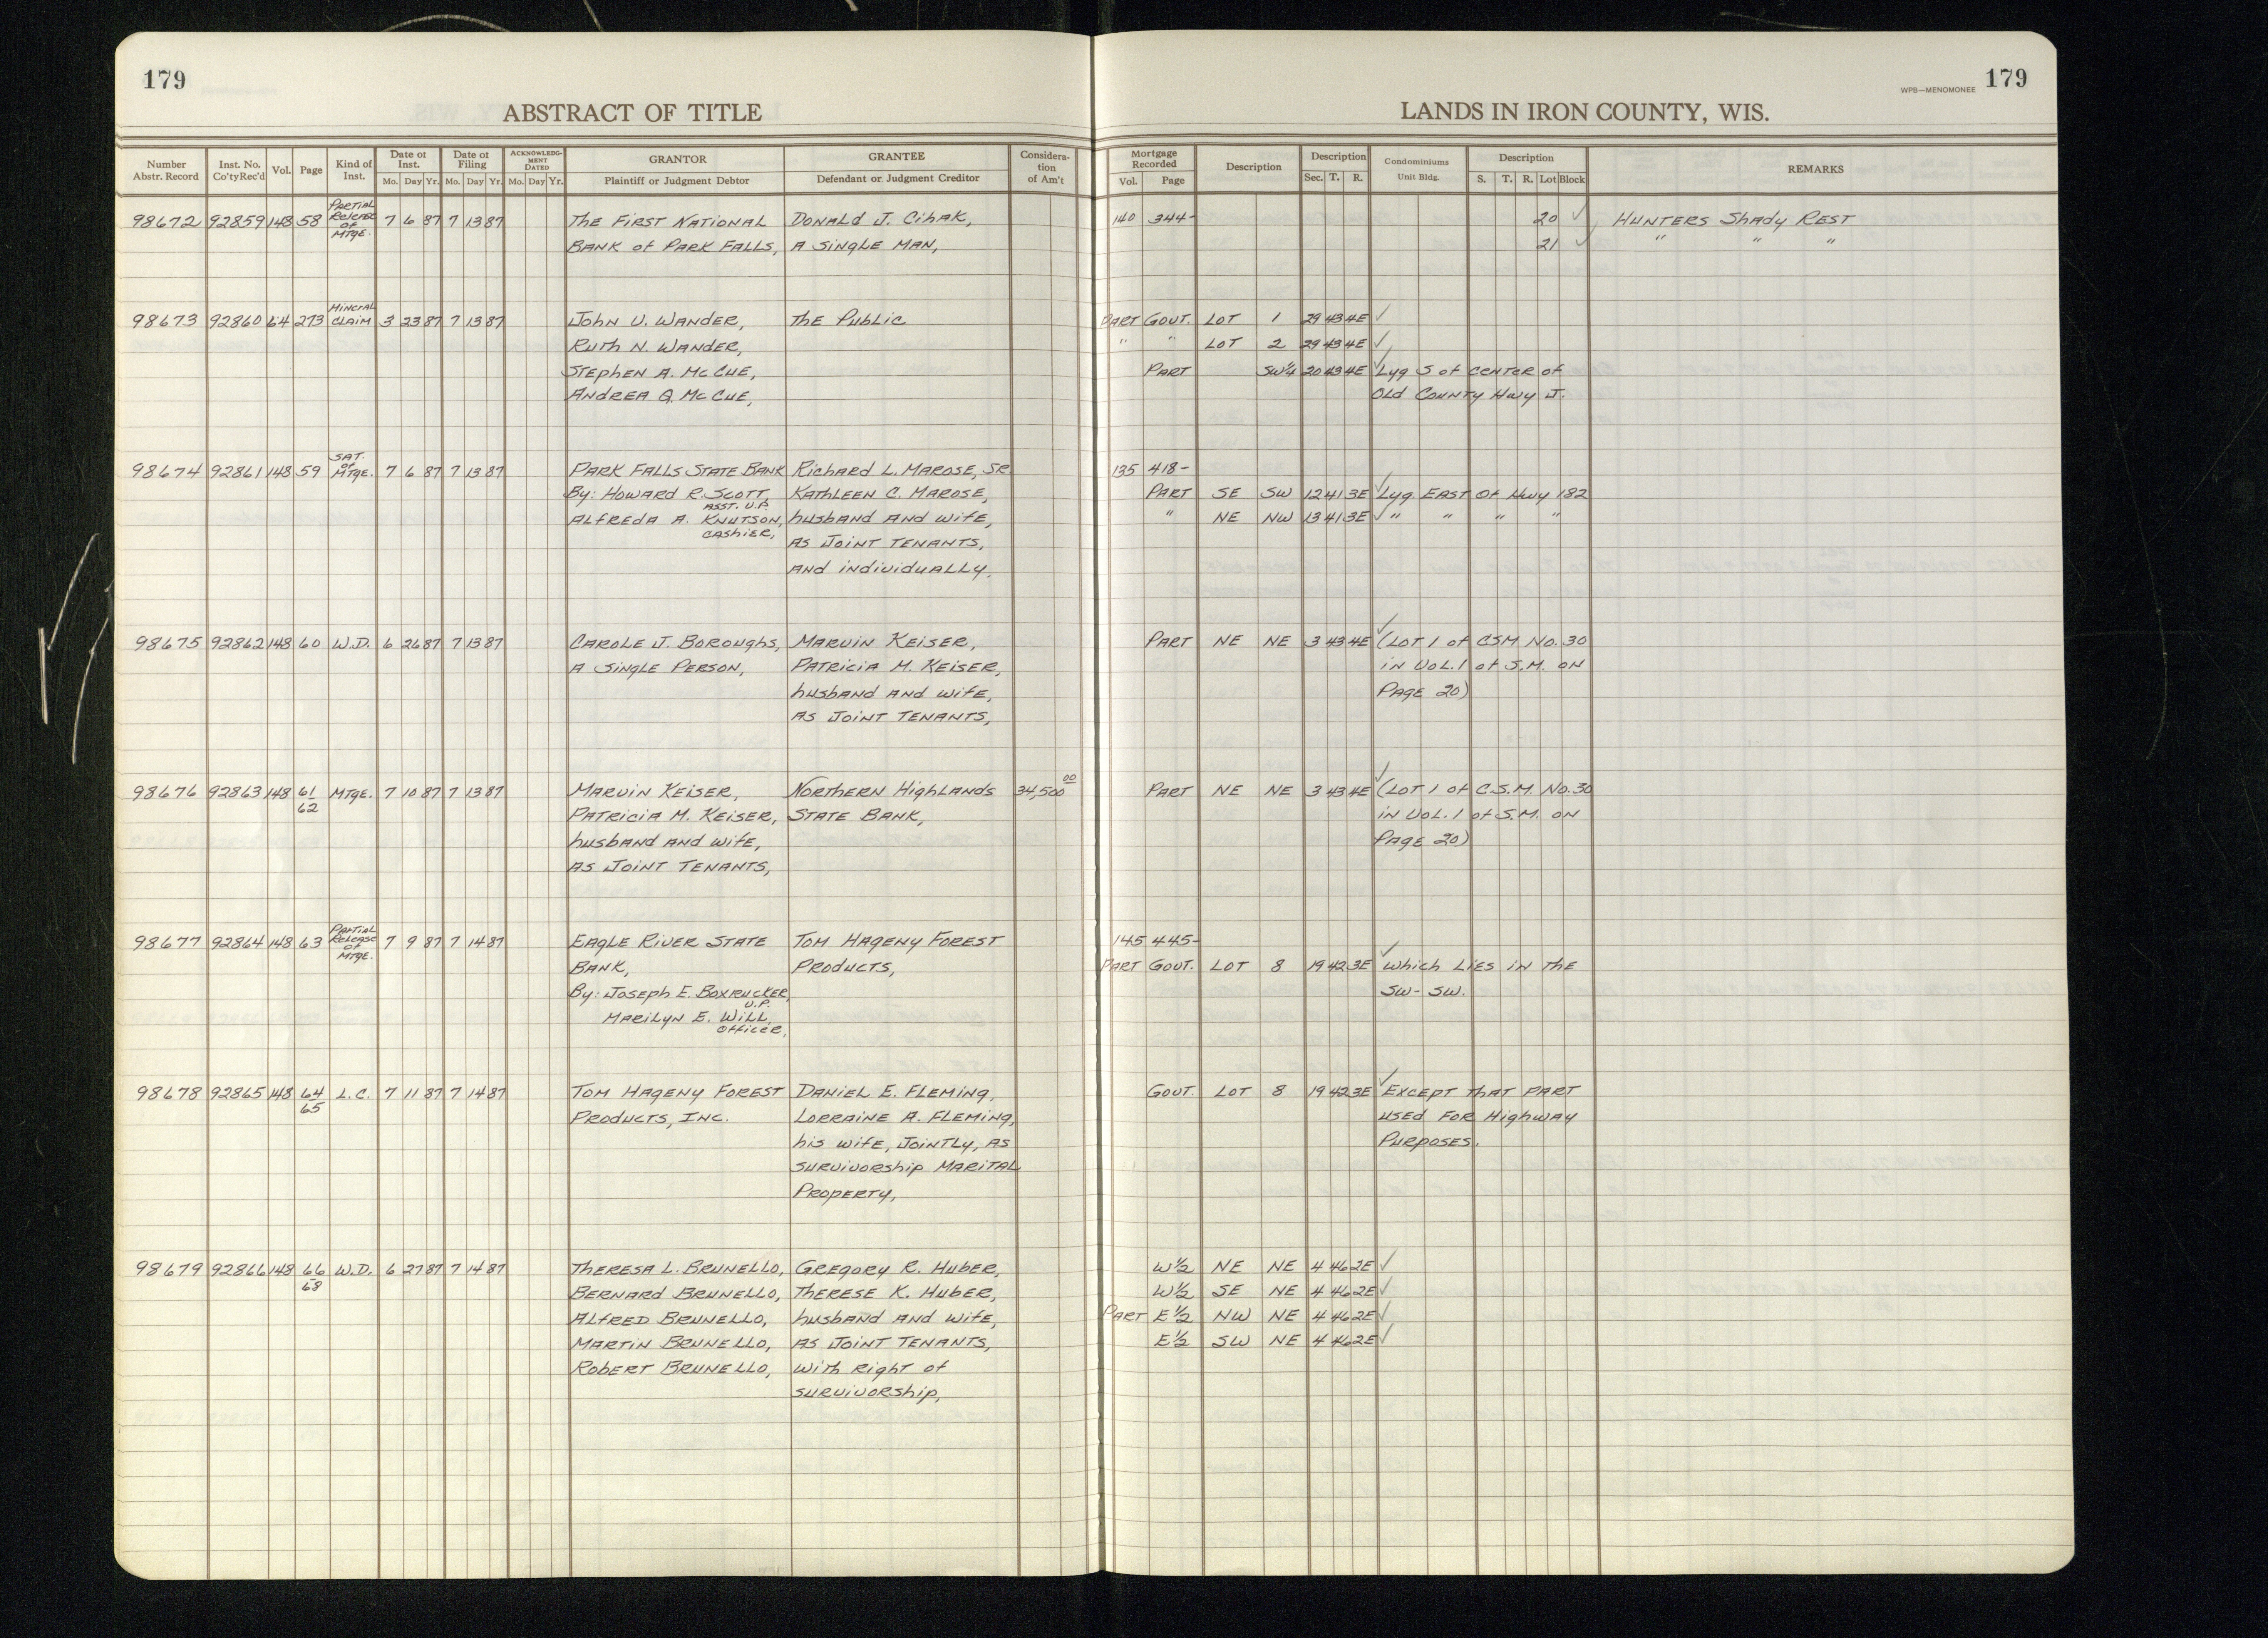 179
ABSTRACT OF TITLE
LANDS IN IRON COUNTY, WIS.
WPB—MENOMONEE 179
Number Abstr. Record | Inst. No. Co'ty Rec'd | Vol. | Page | Kind of Inst. | Date of Inst. Mo. Day Yr. | Date of Filing Mo. Day Yr. | ACKNOWLEDGMENT DATED Mo. Day Yr. | GRANTOR Plaintiff or Judgment Debtor | GRANTEE Defendant or Judgment Creditor | Consideration of Am't | Mortgage Recorded Vol. Page | Description | Description Sec. T. R. | Condominiums Unit Bldg. | Description S. T. R. Lot Block | REMARKS
98672 92859 148 58 Partial Release of Mtge. 7 6 87 7 13 87 The First National Donald J. Cihak, 140 344- 20 ✓ Hunters Shady Rest
Bank of Park Falls, a single man, 21 ✓ " " "
98673 92860 64 273 Mineral Claim 3 23 87 7 13 87 John V. Wander, The Public Part Gout. Lot 1 29 43 4E ✓
Ruth N. Wander, " " Lot 2 29 43 4E ✓
Stephen A. McCue, Part SW¼ 20 43 4E ✓ Lyg S of center of
Andrea Q. McCue, Old County Hwy J.
98674 92861 148 59 Sat. of Mtge. 7 6 87 7 13 87 Park Falls State Bank Richard L. Marose, Sr. 135 418-
By: Howard R. Scott, Asst. V.P. Kathleen C. Marose, Part SE SW 12 41 3E ✓ Lyg East of Hwy 182
Alfreda A. Knutson, Cashier, husband and wife, " NE NW 13 41 3E ✓ " " " "
as joint tenants,
and individually.
98675 92862 148 60 W.D. 6 26 87 7 13 87 Carole J. Boroughs, Marvin Keiser, Part NE NE 3 43 4E ✓ (Lot 1 of CSM No. 30
a single person, Patricia M. Keiser, in Vol. 1 of S.M. on
husband and wife, Page 20)
as joint tenants,
98676 92863 148 61/62 Mtge. 7 10 87 7 13 87 Marvin Keiser, Northern Highlands 34,500 00 Part NE NE 3 43 4E ✓ (Lot 1 of C.S.M. No. 30
Patricia M. Keiser, State Bank, in Vol. 1 of S.M. on
husband and wife, Page 20)
as joint tenants,
98677 92864 148 63 Partial Release of Mtge. 7 9 87 7 14 87 Eagle River State Tom Hageny Forest 145 445-
Bank, Products, Part Gout. Lot 8 19 42 3E ✓ which lies in the
By: Joseph E. Boxrucker, V.P. SW - SW.
Marilyn E. Will, Officer,
98678 92865 148 64/65 L.C. 7 11 87 7 14 87 Tom Hageny Forest Daniel E. Fleming, Gout. Lot 8 19 42 3E ✓ Except that part
Products, Inc. Lorraine A. Fleming, used for Highway
his wife, jointly, as Purposes.
survivorship marital
property,
98679 92866 148 66-68 W.D. 6 27 87 7 14 87 Theresa L. Brunello, Gregory R. Huber, W½ NE NE 4 46 2E ✓
Bernard Brunello, Therese K. Huber, W½ SE NE 4 46 2E ✓
Alfred Brunello, husband and wife, Part E½ NW NE 4 46 2E ✓
Martin Brunello, as joint tenants, E½ SW NE 4 46 2E ✓
Robert Brunello, with right of
survivorship,